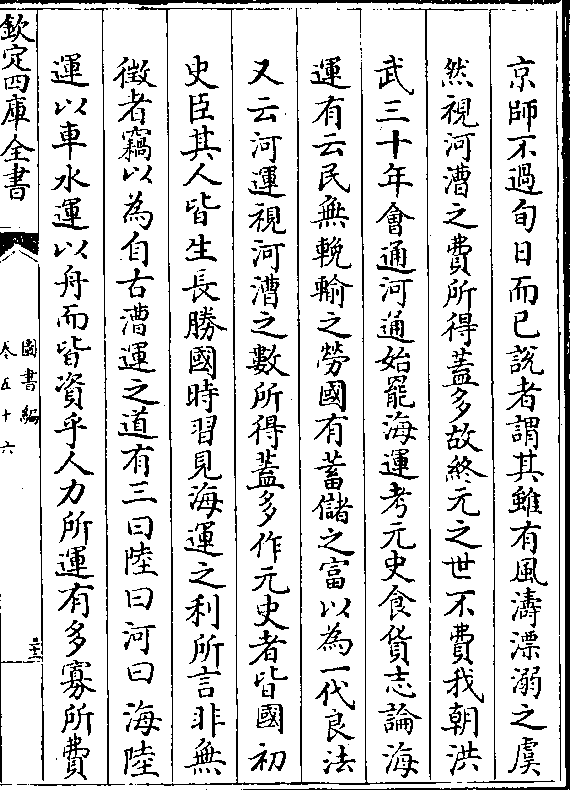 京師不過旬日而已說者謂其雖有風濤漂溺之虞
然視河漕之費所得蓋多故終元之世不費我朝洪
武三十年會通河通始罷海運考元史食貨志論海
運有云民無輓輸之勞國有蓄儲之富以為一代良法
又云河運視河漕之數所得蓋多作元史者皆國初
史臣其人皆生長勝國時習見海運之利所言非無
徵者竊以為自古漕運之道有三曰陸曰河曰海陸
運以車水運以舟而皆資乎人力所運有多寡所費
欽定四庫全書
圖書編
卷五十六